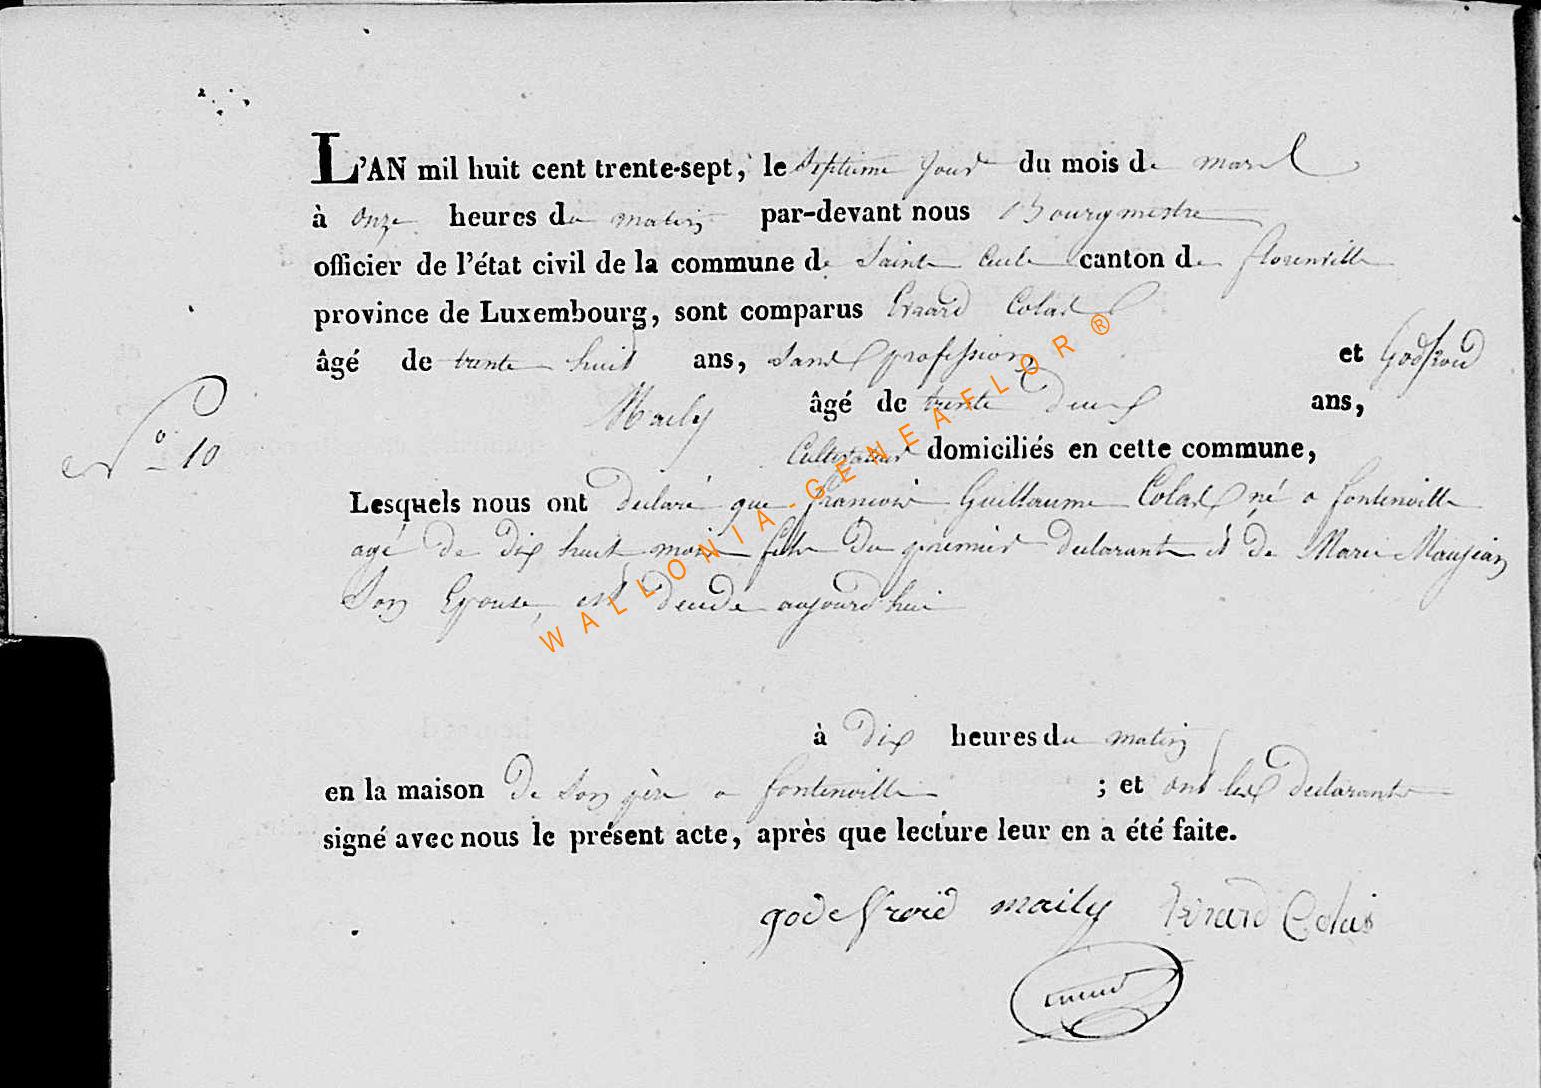 L'AN mil huit cent trente-sept, le Septieme jour du mois de mars
à onze heures du matin par-devant nous Bourgmestre
officier de l'état civil de la commune de Sainte Cecile canton de florenville
province de Luxembourg, sont comparus Evrard Colas
âgé de trente huit ans, sans profession et Godfroid
Maily âgé de trente deux ans,
N° 10
Cultivateur domiciliés en cette commune,
Lesquels nous ont declaré que francois Guillaume Colas né a fontenoille
agé de dix huit mois fils du premier declarant et de Marie Maujean
Son Epouse, est decedé aujourd'hui
à dix heures du matin
en la maison de son père a fontenoille ; et ont les declarants
signé avec nous le présent acte, après que lecture leur en a été faite.
godefroid maily Evrard Colas
WALLONIA-GENEAFLOR®